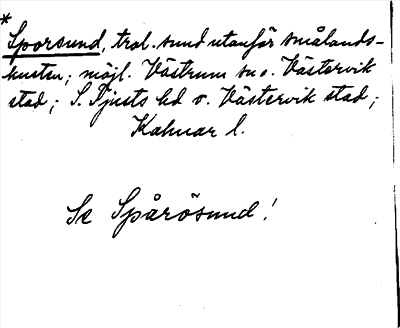 *
Sporsund, trol. sund utanför smålands-
kusten; möjl. Västrum sn o. Västervik
stad; S. Tjusts hd o. Västervik stad;
Kalmar l.
Se Spårösund!